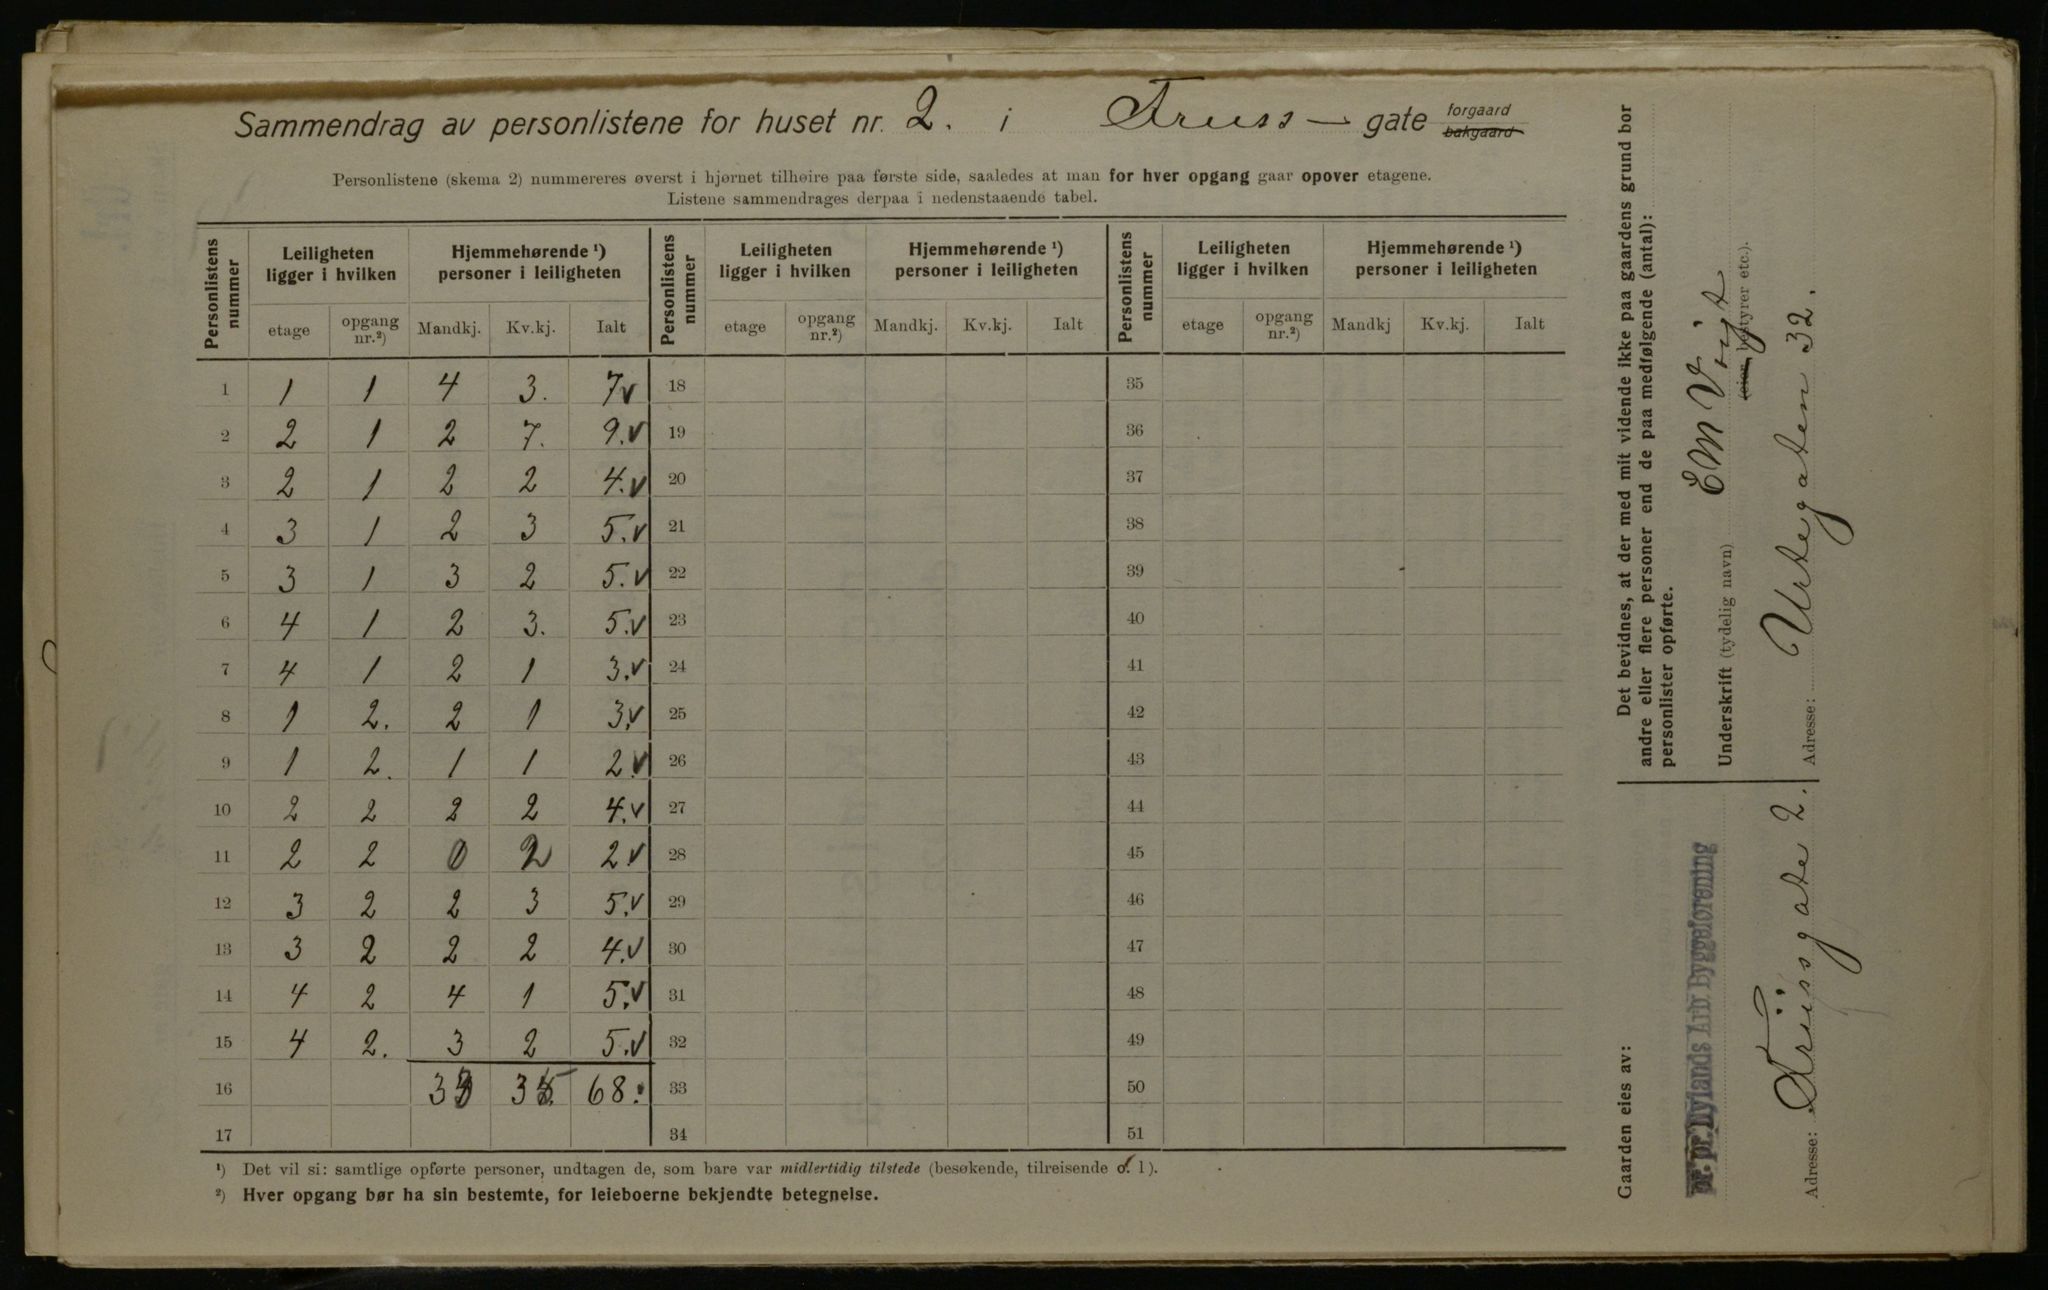 Sammendrag av personlistene for huset nr. 2. i Friiss — gate forgaard bakgaard
Personlistene (skema 2) nummereres øverst i hjørnet tilhøire paa første side, saaledes at man for hver opgang gaar opover etagene.
Listene sammendrages derpaa i nedenstaaende tabel.
Personlistens nummer Leiligheten ligger i hvilken Hjemmehørende ¹) personer i leiligheten Personlistens nummer Leiligheten ligger i hvilken Hjemmehørende ¹) personer i leiligheten Personlistens nummer Leiligheten ligger i hvilken Hjemmehørende ¹) personer i leiligheten
etage opgang nr.²) Mandkj. Kv.kj. Ialt etage opgang nr.²) Mandkj. Kv.kj. Ialt etage opgang nr.²) Mandkj Kv.kj. Ialt
1 1 1 4 3. 7 v 18 35
2 2 1 2 7. 9. v 19 36
3 2 1 2 2 4. v 20 37
4 3 1 2 3 5. v 21 38
5 3 1 3 2 5. v 22 39
6 4 1 2 3. 5. v 23 40
7 4 1 2 1 3. v 24 41
8 1 2. 2 1 3. v 25 42
9 1 2. 1 1 2. v 26 43
10 2 2 2 2 4. v 27 44
11 2 2 0 2 2. v 28 45
12 3 2 2 3 5. v 29 46
13 3 2 2 2 4. v 30 47
14 4 2 4 1 5. v 31 48
15 4 2. 3 2 5. v 32 49
16 33 35 68. 33 50
17 34 51
¹) Det vil si: samtlige opførte personer, undtagen de, som bare var midlertidig tilstede (besøkende, tilreisende o. l).
²) Hver opgang bør ha sin bestemte, for leieboerne bekjendte betegnelse.
Det bevidnes, at der med mit vidende ikke paa gaardens grund bor
andre eller flere personer end de paa medfølgende (antal):
personlister opførte.
Underskrift (tydelig navn) E M Vigt
(eier bestyrer etc.).
Adresse: Urtegaten 32.
Gaarden eies av:
pr. pr. Nylands Arb. Byggeforening
Adresse: Friisgate 2.